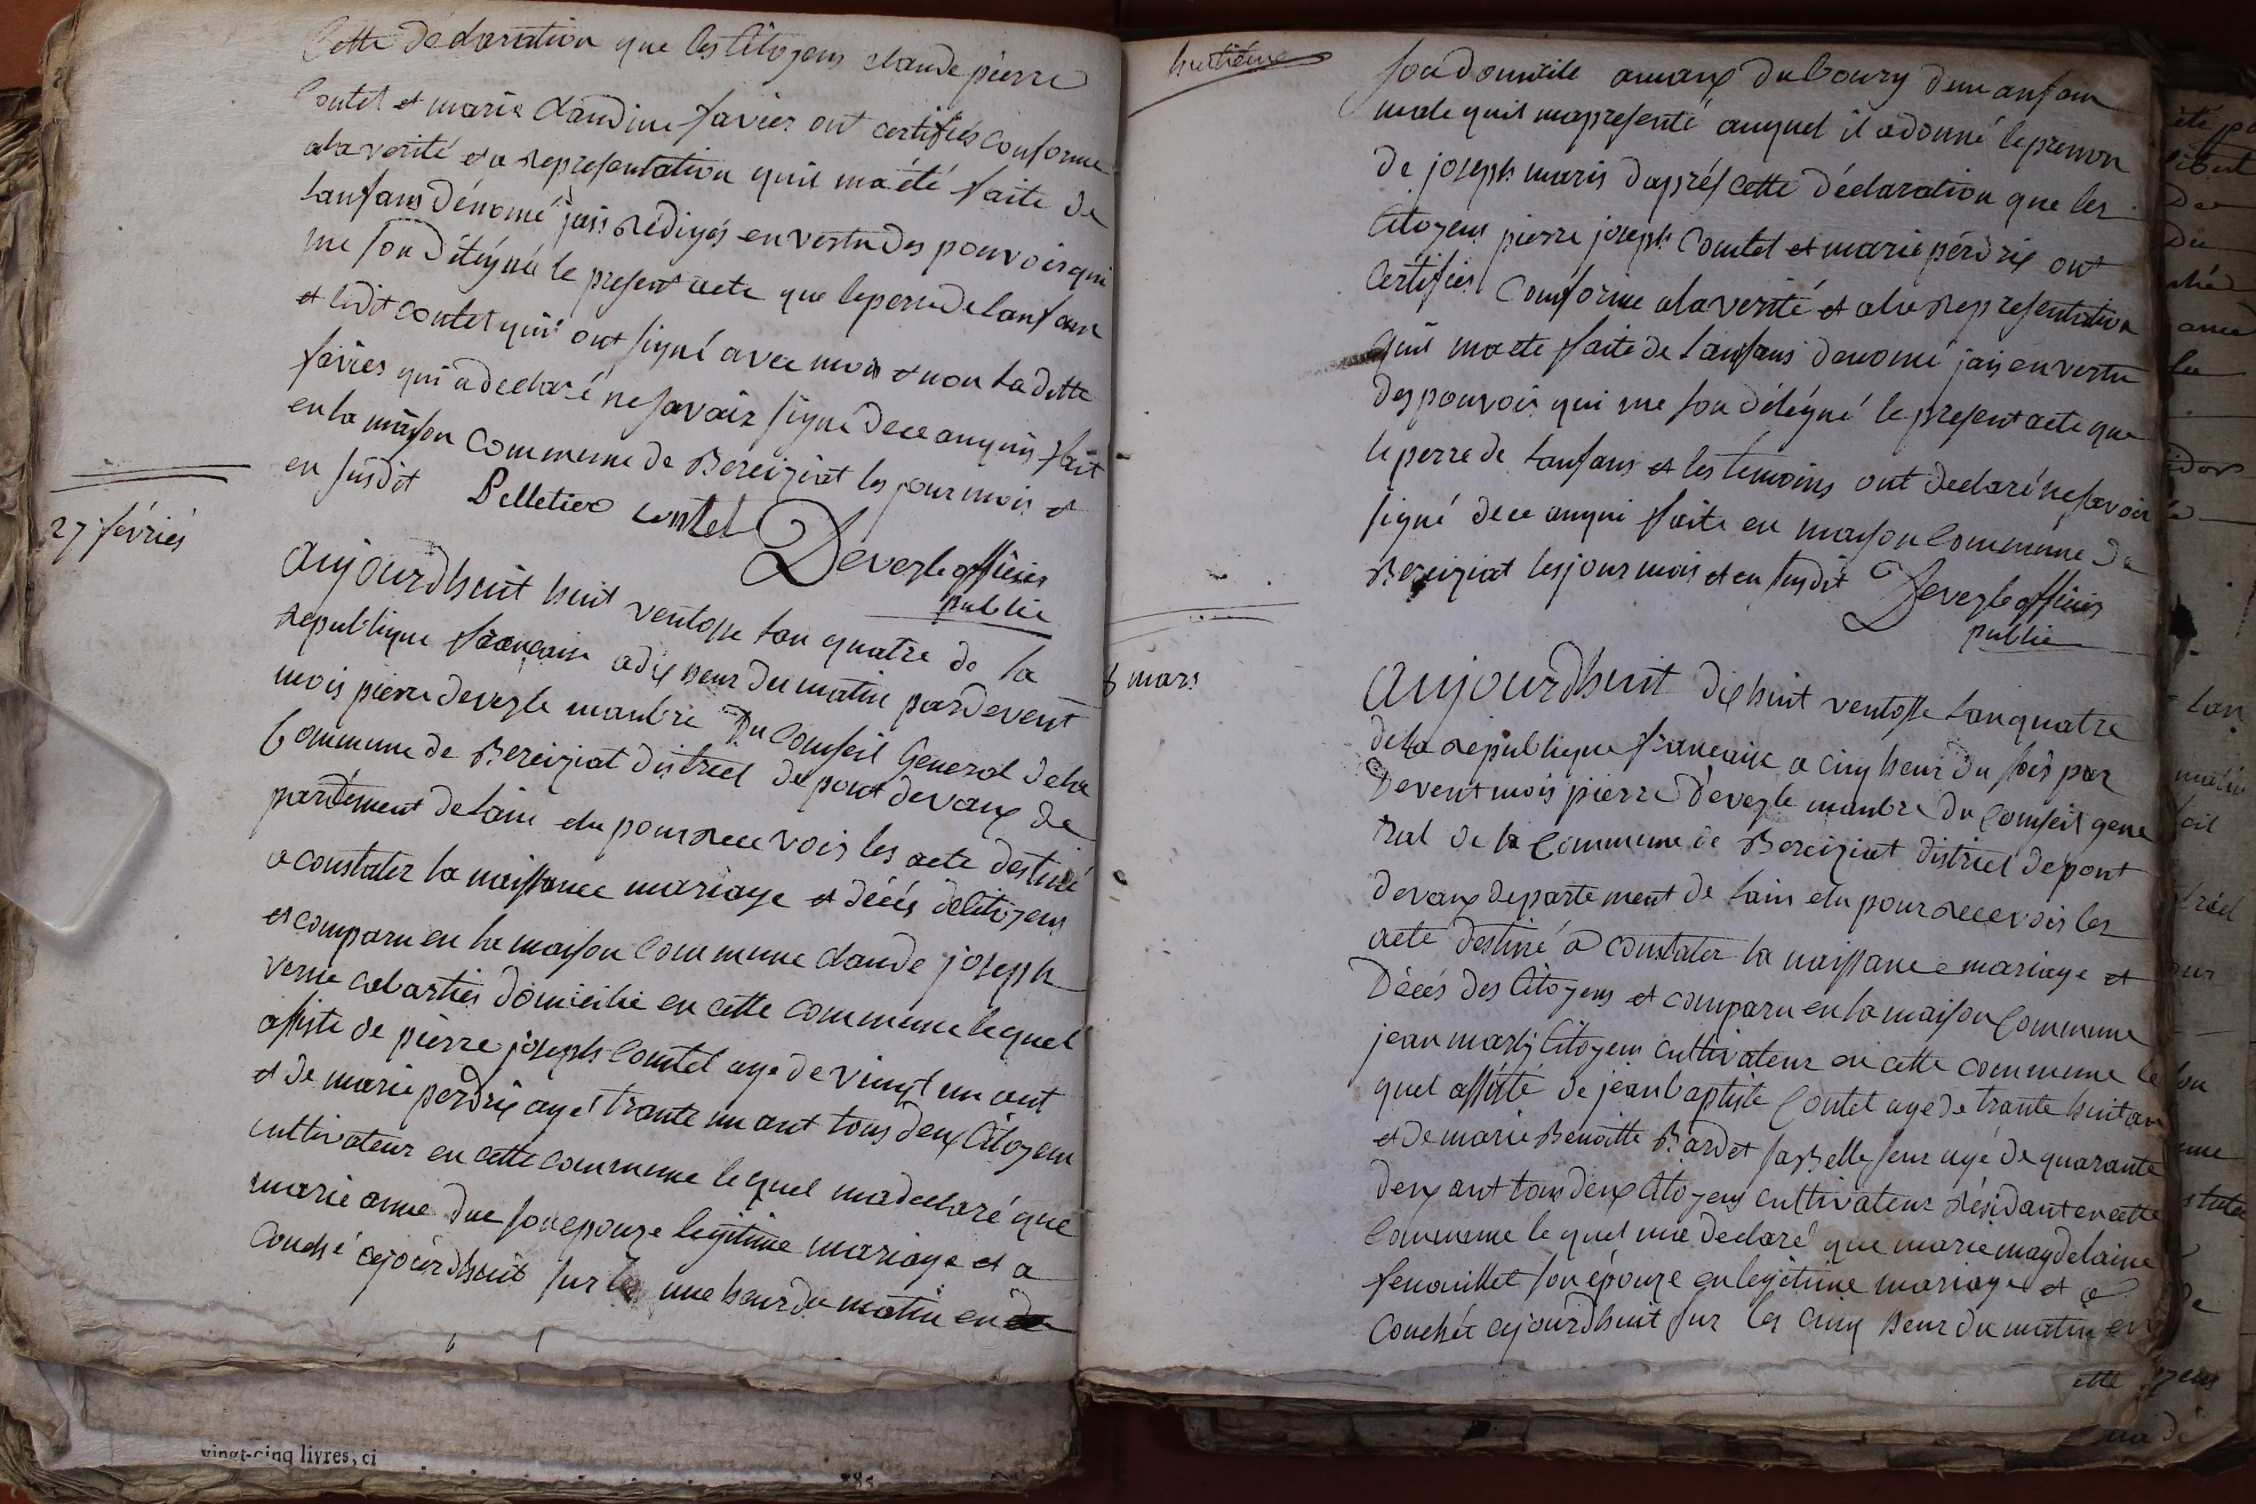 Cette déclaration que les Citoyens claude pierre
Contet et marie claudine favier ont certifiés conforme
ala verité et a Representation quil ma été faite de
lanfans dénomé jais Rédigés en vertu des pouvois qui
me son délégué le present acte que le perre de lanfans
et ledit contet qui ont signé avec mois et non la ditte
favier qui a declaré ne savoir signé de ce anquis fait
en la maison Commeune de Bereiziat les jour mois et
en susdit Pelletier Contet
Deveyle officier
public
27 févriés
aujourdhuit huit ventosse lan quatre de la
Republique francaise a dix heur du matin pardevent
mois pierre deveyle manbre Du Conseil General dela
Commune de Bereiziat district de pont devaux de
partement de lain elu pour Recevois les acte destiné
a constater la naissance mariage et décés de Citoyens
et comparu en la maison Commune claude joseph
verne cabartiés domicilié en cette commune lequel
assisté de pierre joseph Comtet agé de vingt un ant
et de marie perdrix agé trante un ant tous deux Citoyens
cultivateur en cette commune le quel ma declaré que
marie anne duc son epouze legitime mariage et a
Couché ajourdhuit sur les une heur du matin en
huitième
son domicile a maux du bourg dun anfans
male quil ma presenté auquel il a donné le prenon
de joseph maris daprés cette déclaration que les
Citoyens pierre joseph Comtet et marie pérdrix ont
Certifies Comforme ala verité et ala Representation
quil ma ete faite de lanfans denomé jais en vertu
des pouvois qui me son délégué le present acte que
le perre de lanfans et les temoins ont declaré ne savoir
signé de ce anqui faite en maison Commune de
Bereiziat les jour mois et en susdit Deveyle officier
public
8 mars
aujourdhuit dix huit ventosse lan quatre
de la Republique francaise a cinq heur du soir par
Devent mois pierre Deveyle manbre du Comseil gene
ral de la Commune de Bereiziat district de pont
devaux departement de lain elu pour Recevois les
acte destiné a constater la naissance mariage et
Décés des Citoyens et comparu en la maison Commune
jean marly Citoyens cultivateur en cette commune le
quel assisté de jean baptiste Contet agé de trante huit an
et de marie Benoitte Bardet sa Belle seur agé de quarante
deux ant tous deux Citoyens cultivateur Résidant en cette
Commune le quel ma declaré que marie magdelaine
fenouillet son épouze en legitime mariage et a
Couchée ajourdhuit sur les cinq heur du matin en
cette
vingt-cinq livres, ci